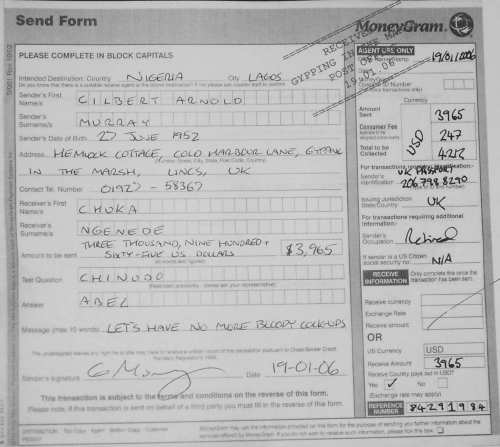 Send Form
MoneyGram.
PLEASE COMPLETE IN BLOCK CAPITALS
RECEIVED
GYPPING IN THE MARSH
POST OFFICE
19.01.06
AGENT USE ONLY
19/01/2006
Intended Destination: Country NIGERIA City LAGOS
Sender's First Name/s GILBERT ARNOLD
Sender's Surname/s MURRAY
Sender's Date of Birth 27 JUNE 1952
Address HEMLOCK COTTAGE, COLD HARBOUR LANE, GYPPING
IN THE MARSH, LINCS, UK
Contact Tel. Number 01927 - 58367
Receiver's First Name/s CHUKA
Receiver's Surname/s NGENEDE
THREE THOUSAND, NINE HUNDRED +
Amount to be sent SIXTY-FIVE US DOLLARS $3,965
Test Question CHINUDO
Answer ABEL
Message (max 10 words) LET'S HAVE NO MORE BLOODY COCK-UPS
Sender's signature Date 19-01-06
This transaction is subject to the terms and conditions on the reverse of this form.
Please note, if this transaction is sent on behalf of a third party you must fill in the reverse of this form.
ID Number
Currency
Amount Sent 3965
Consumer Fee 247
USD
Total to be Collected 4212
For transactions requiring identification:
Sender's Identification UK PASSPORT
206.798.8290
Issuing Jurisdiction State/Country UK
For transactions requiring additional information:
Sender's Occupation Retired
If sender is a US Citizen social security no. N/A
RECEIVE INFORMATION
Only complete this once the transaction has been sent.
Receive currency
Exchange Rate
Receive amount
OR
US Currency USD
Receive Amount 3965
Receive Country pays out in USD?
Yes ✓ No
(Exchange rate may apply)
REFERENCE NUMBER 84291984